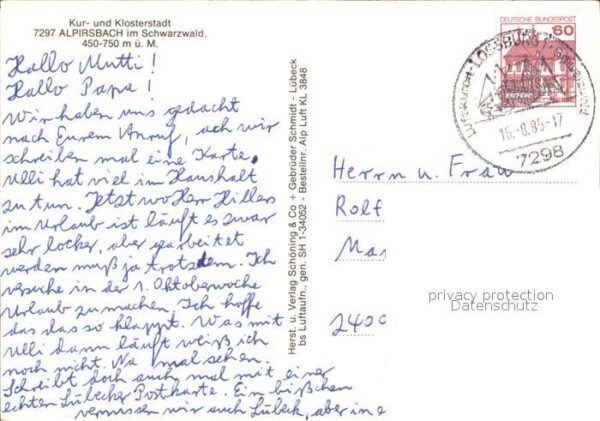 Kur- und Klosterstadt
7297 ALPIRSBACH im Schwarzwald.
450-750 m ü. M.
Hallo Mutti!
Hallo Papa!
Wir haben uns gedacht
nach Eurem Anruf, ach wir
schreiben mal eine Karte.
Ulli hat viel im Haushalt
zu tun. Jetzt wo Herr Hilles
im Urlaub ist läuft es zwar
sehr locker, aber gearbeitet
werden muß ja trotzdem. Ich
versuche in der 1. Oktoberwoche
Urlaub zu machen. Ich hoffe
das das so klappt. Was mit
Ulli dann läuft weiß ich
noch nicht. Na mal sehen.
Schreibt doch auch mal mit einer
echten Lübecker Postkarte. Ein bißchen
vermissen wir auch Lübeck, aber in e
Herst. u. Verlag Schöning & Co + Gebrüder Schmidt - Lübeck
bs Luftaufn., gen. SH 1-34052 - Bestellnr. Alp Luft KL 3848
DEUTSCHE BUNDESPOST
60
LOSSBURG 1
Luftkurort
16.-8.85-17
7298
Herrn u. Frau
Rolf
Ma
2400
privacy protection
Datenschutz